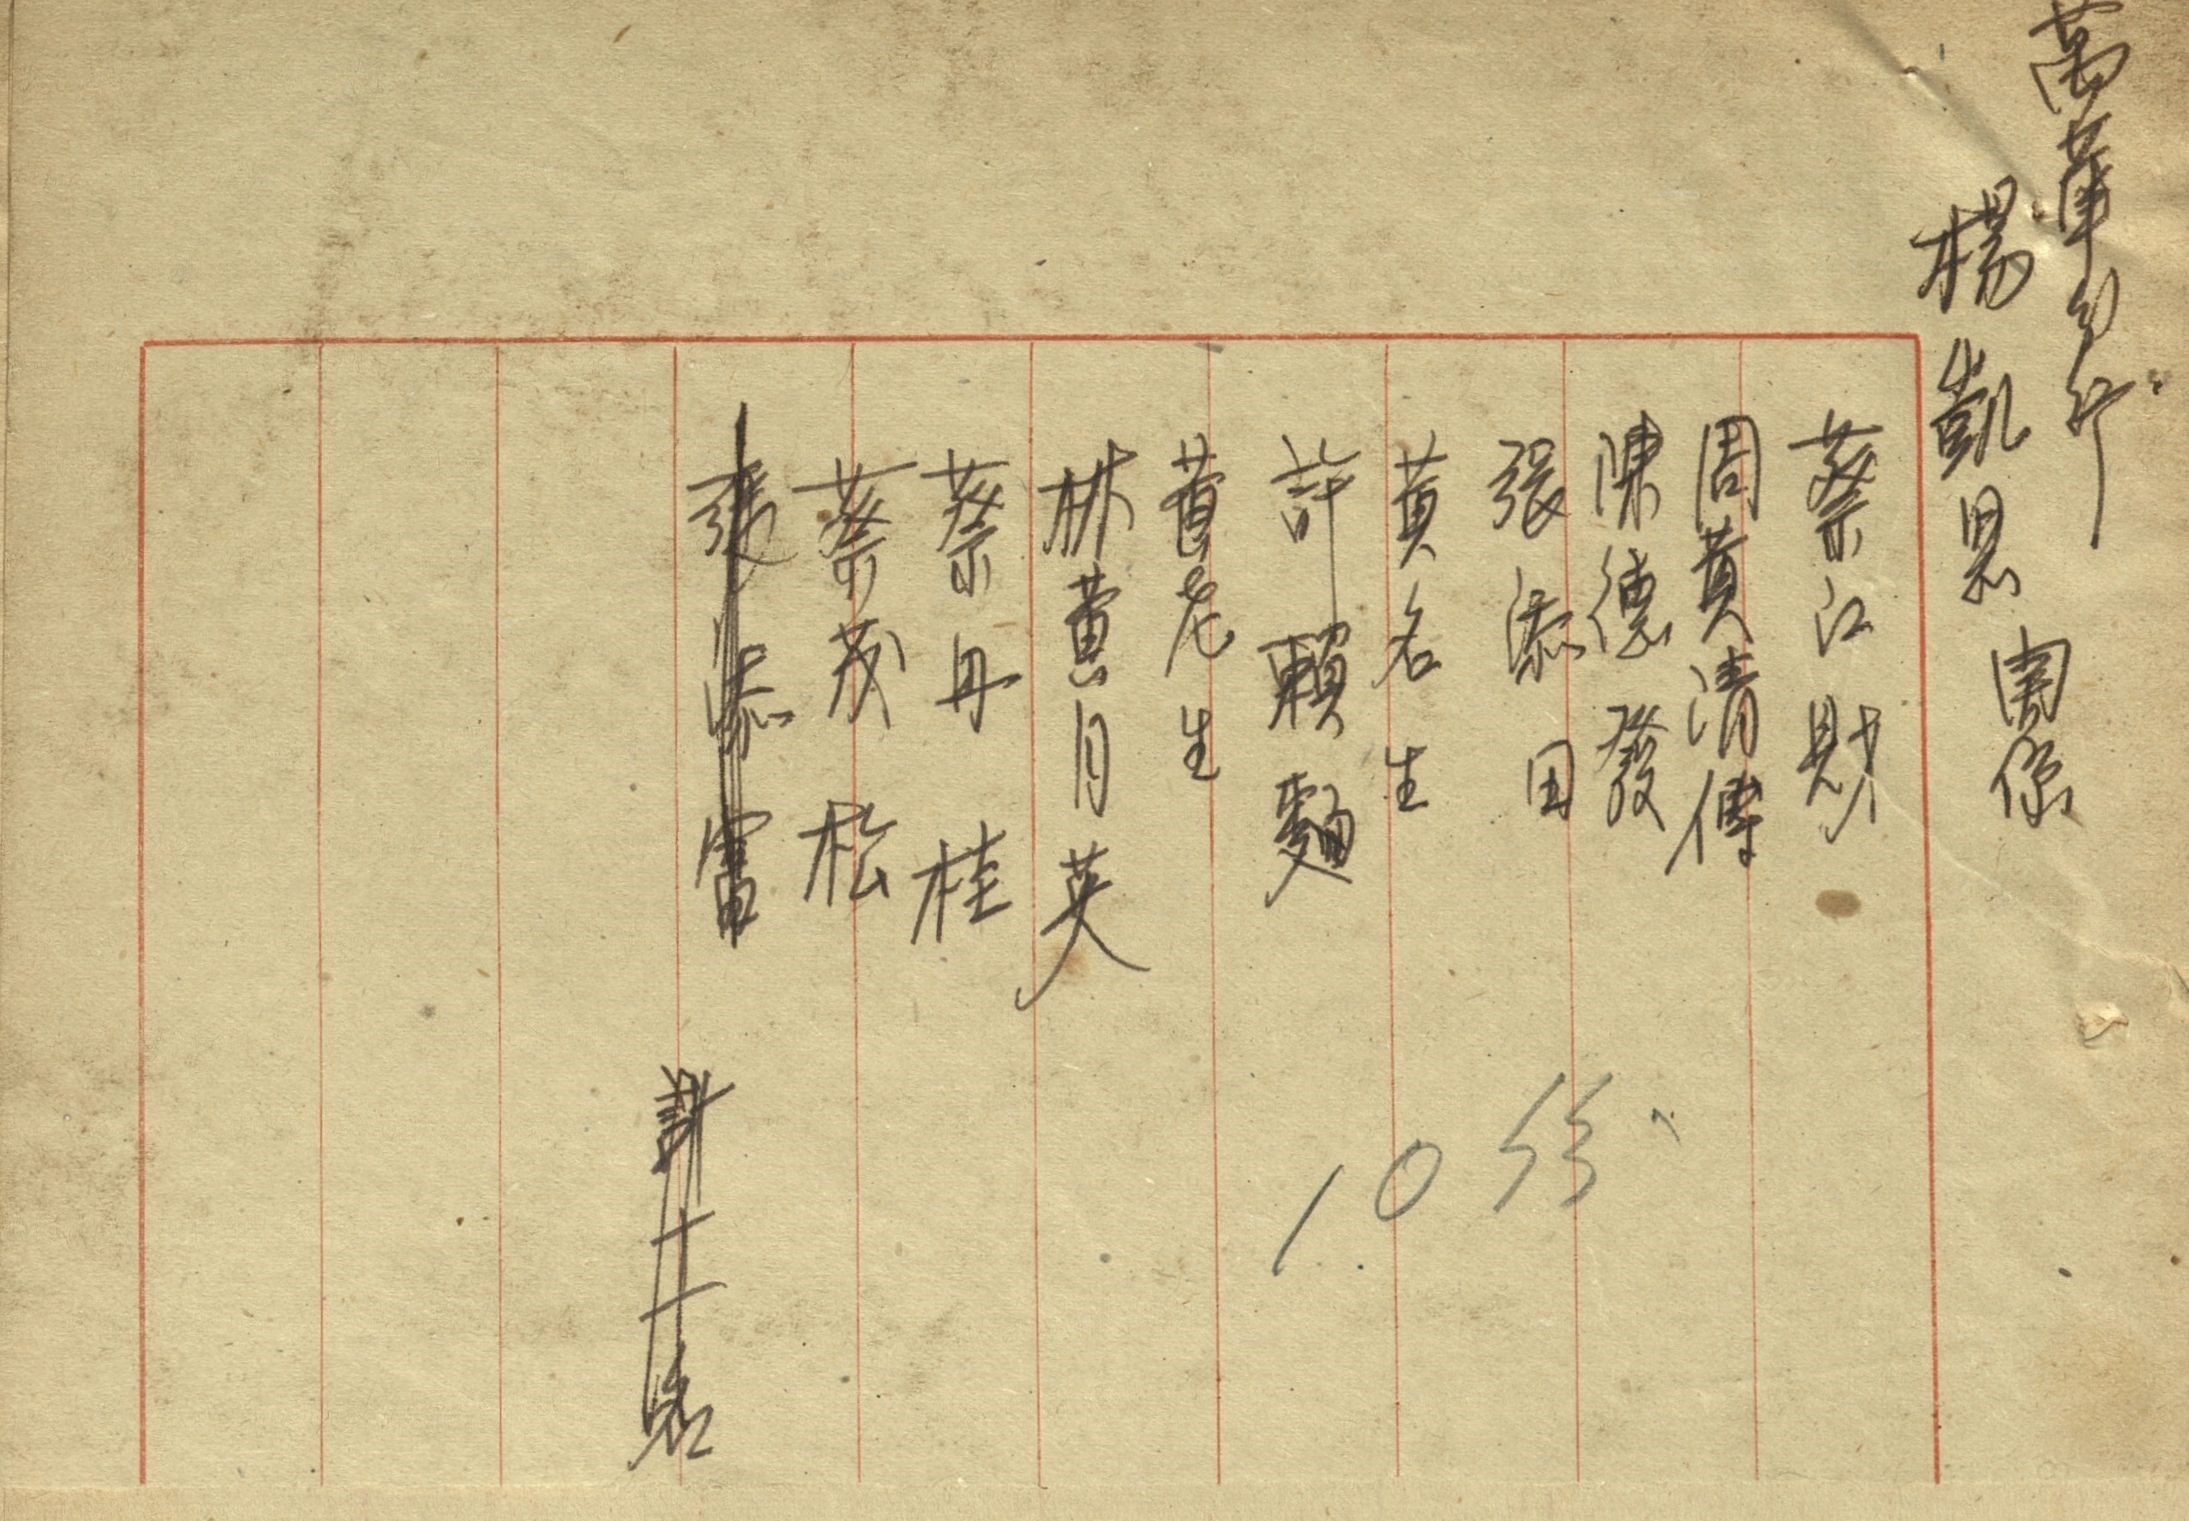 萬華分行
楊凱恩 関係
蔡江財
周黄清傳
陳德發
張添田
黄名生
許賴麵
黄老生
林黄月英
蔡丹桂
蔡茂松
張添富
計十一名
10份